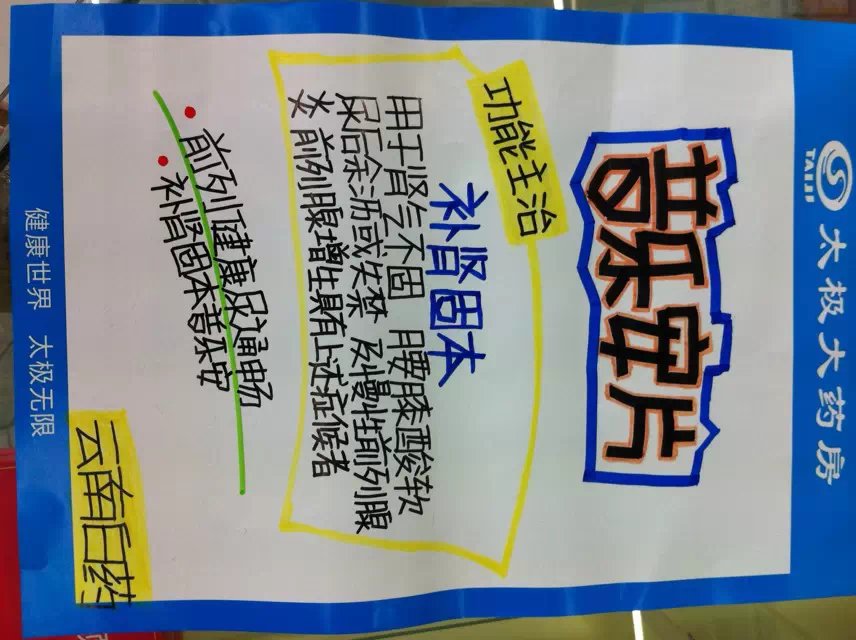 TAIJI
太极大药房
普乐安片
功能主治
补肾固本
用于肾气不固 腰膝酸软
尿后余沥或失禁 及慢性前列腺
炎 前列腺增生具有上述症候者
前列健康尿通畅
补肾固本普乐安
云南白药
健康世界 太极无限